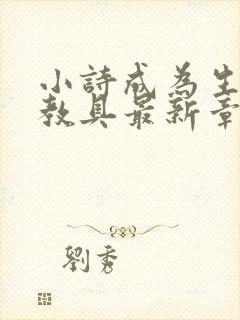 小詩成為生
教具最新章
劉秀